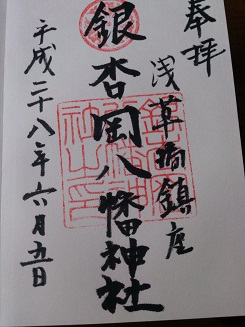 奉拝
浅草橋鎮座
銀杏岡八幡神社
平成二十八年六月五日